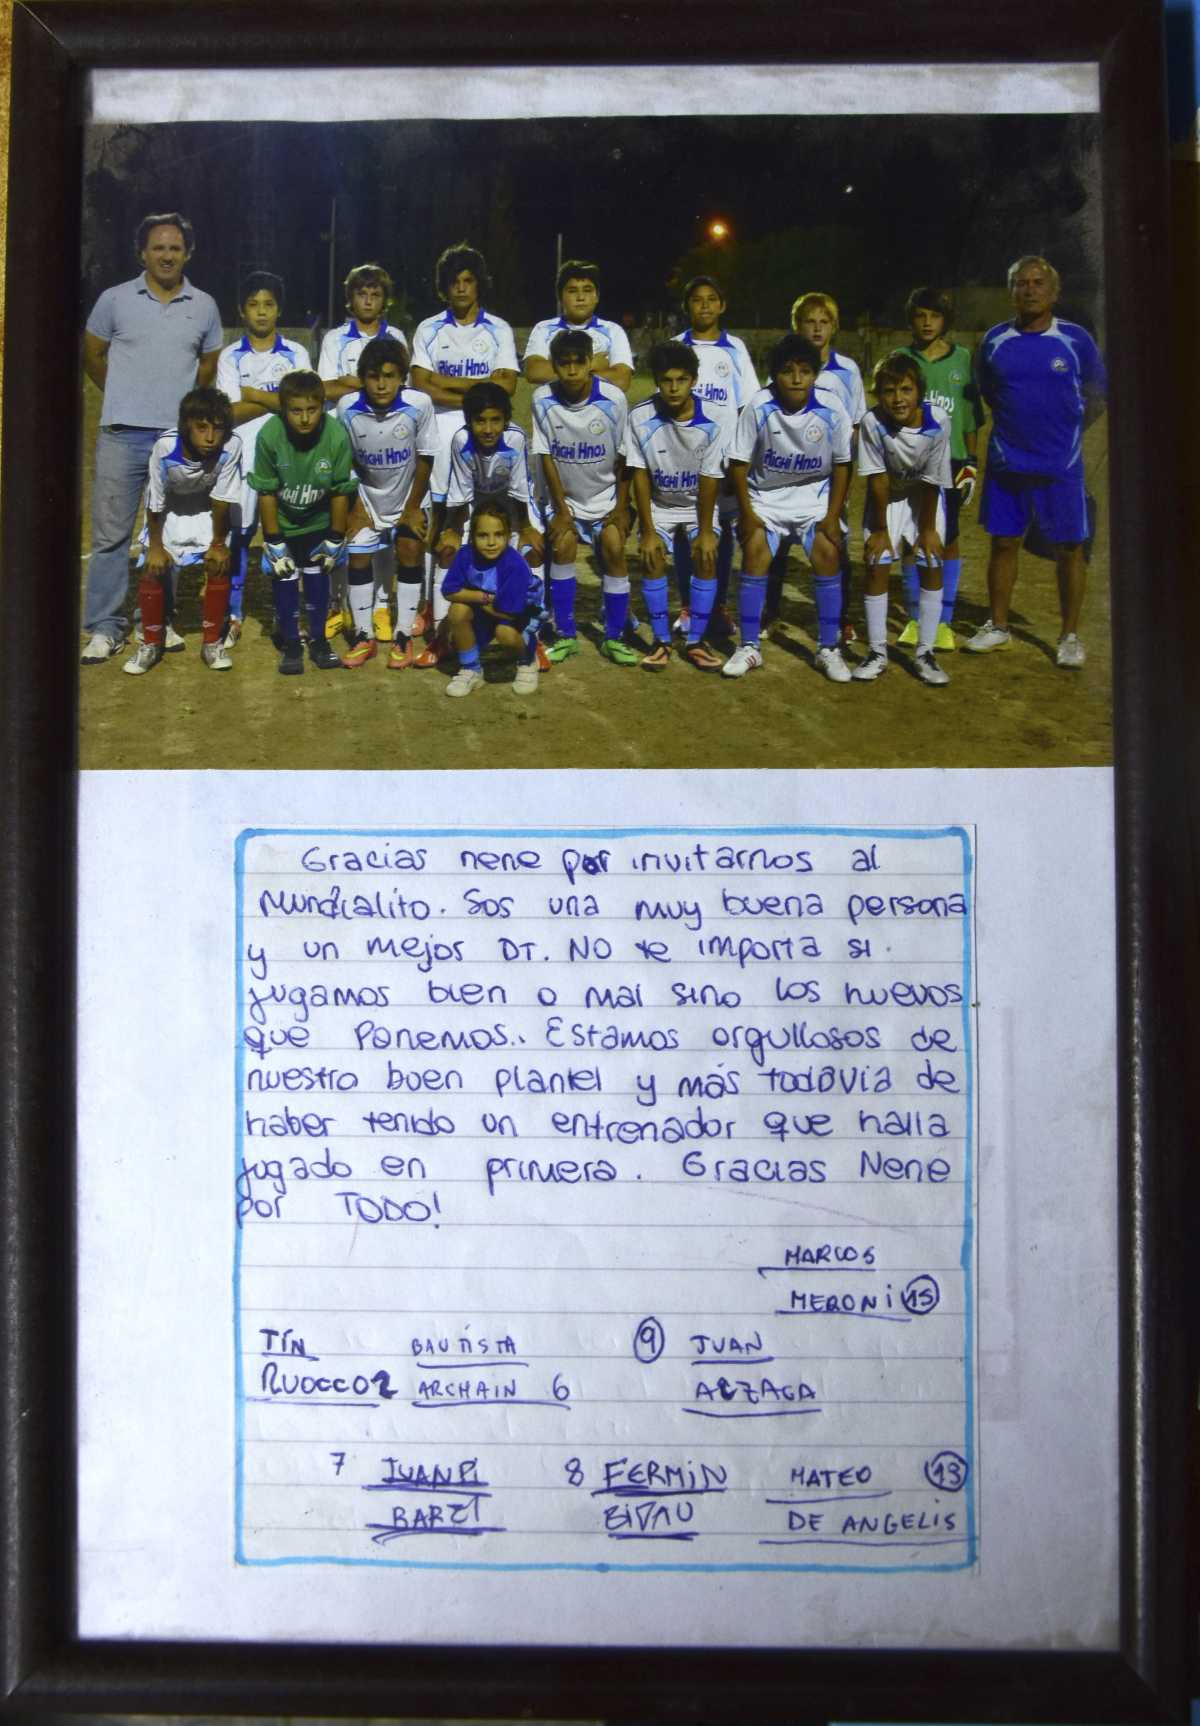 Righi Hnos
Righi Hnos
Righi Hnos
Righi Hnos
Righi Hnos
Gracias nene por invitarnos al
mundialito. Sos una muy buena persona
y un mejos DT. NO te importa si
jugamos bien o mal sino los huevos
que Ponemos.. Estamos orgullosos de
nuestro buen plantel y más todavia de
haber tenido un entrenador que halla
jugado en primera. Gracias Nene
por TODO!
MARCOS
MERONI 15
TÍN BAUTISTA 9 JUAN
RUOCCO 2 ARCHAIN 6 ALZAGA
7 JUANPI 8 FERMIN MATEO 13
BARZI BIDAU DE ANGELIS